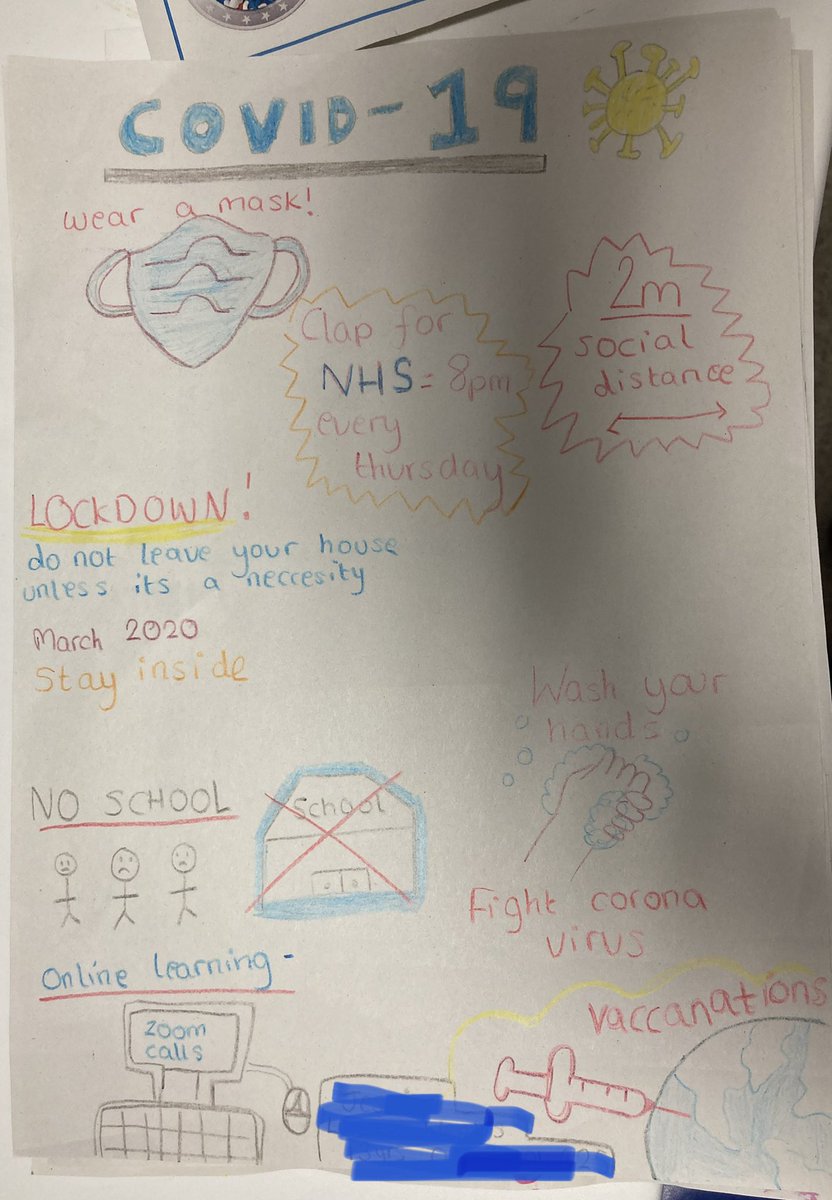 COVID-19
wear a mask!
Clap for
NHS = 8pm
every
thursday
2m
social
distance
LOCKDOWN!
do not leave your house
unless its a neccesity
March 2020
Stay inside
Wash your
hands
NO SCHOOL
School
Fight corona
virus
Online learning -
zoom
calls
vaccanations